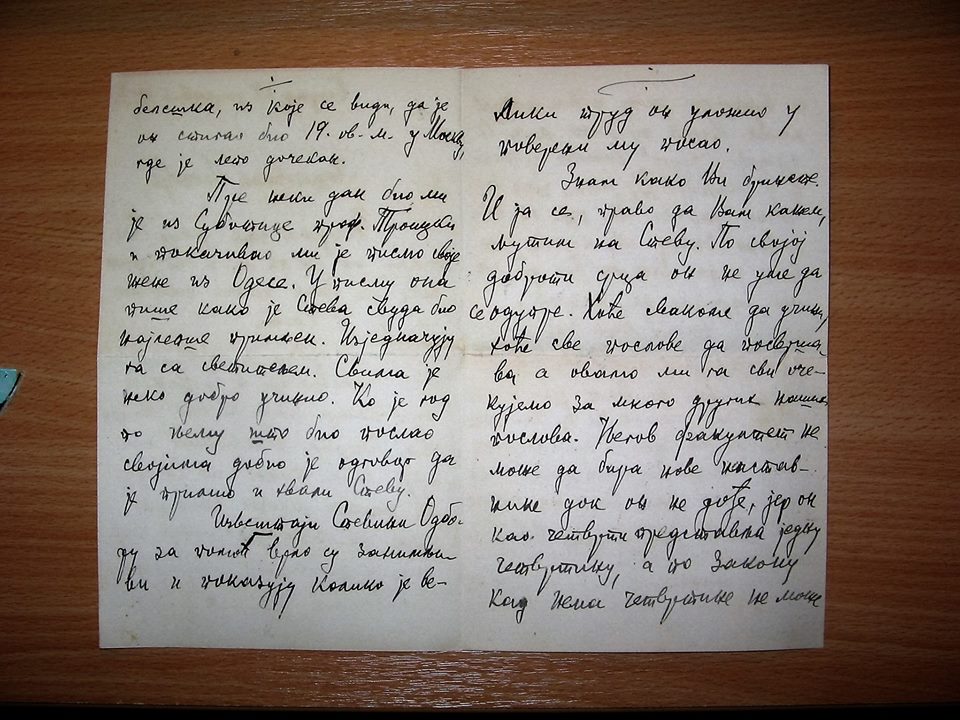 белешка, из које се види, да је
он стигао био 19. ов. м. у Москву,
где је лепо дочекан.
Пре неки дан био ми
је из Суботице проф. Троицки
и показивао ми је писмо своје
жене из Одесе. У писму она
пише како је Стева свуда био
најлепше примљен. Изједначују
га са светитељем. Свима је
неко добро учинио. Ко је год
по њему што био послао
својима добио је одговор да
је примио и хвали Стеву.
Извештаји Стевини Одбо-
ру за помоћ врло су занимљи-
ви и показују колико је ве-
лики труд он уложио у
поверени му посао.
Знам како Ви бринете.
И ја се, право да Вам кажем,
љутим на Стеву. По својој
доброти срца он не уме да
се одупре. Хоће свакоме да учини,
хоће све послове да посврша-
ва а овамо ми га сви оче-
кујемо за много других наших
послова. Његов факултет не
може да бира нове настав-
нике док он не дође, јер он
као четврти представља једну
четвртину, а по закону
кад нема четвртине не може